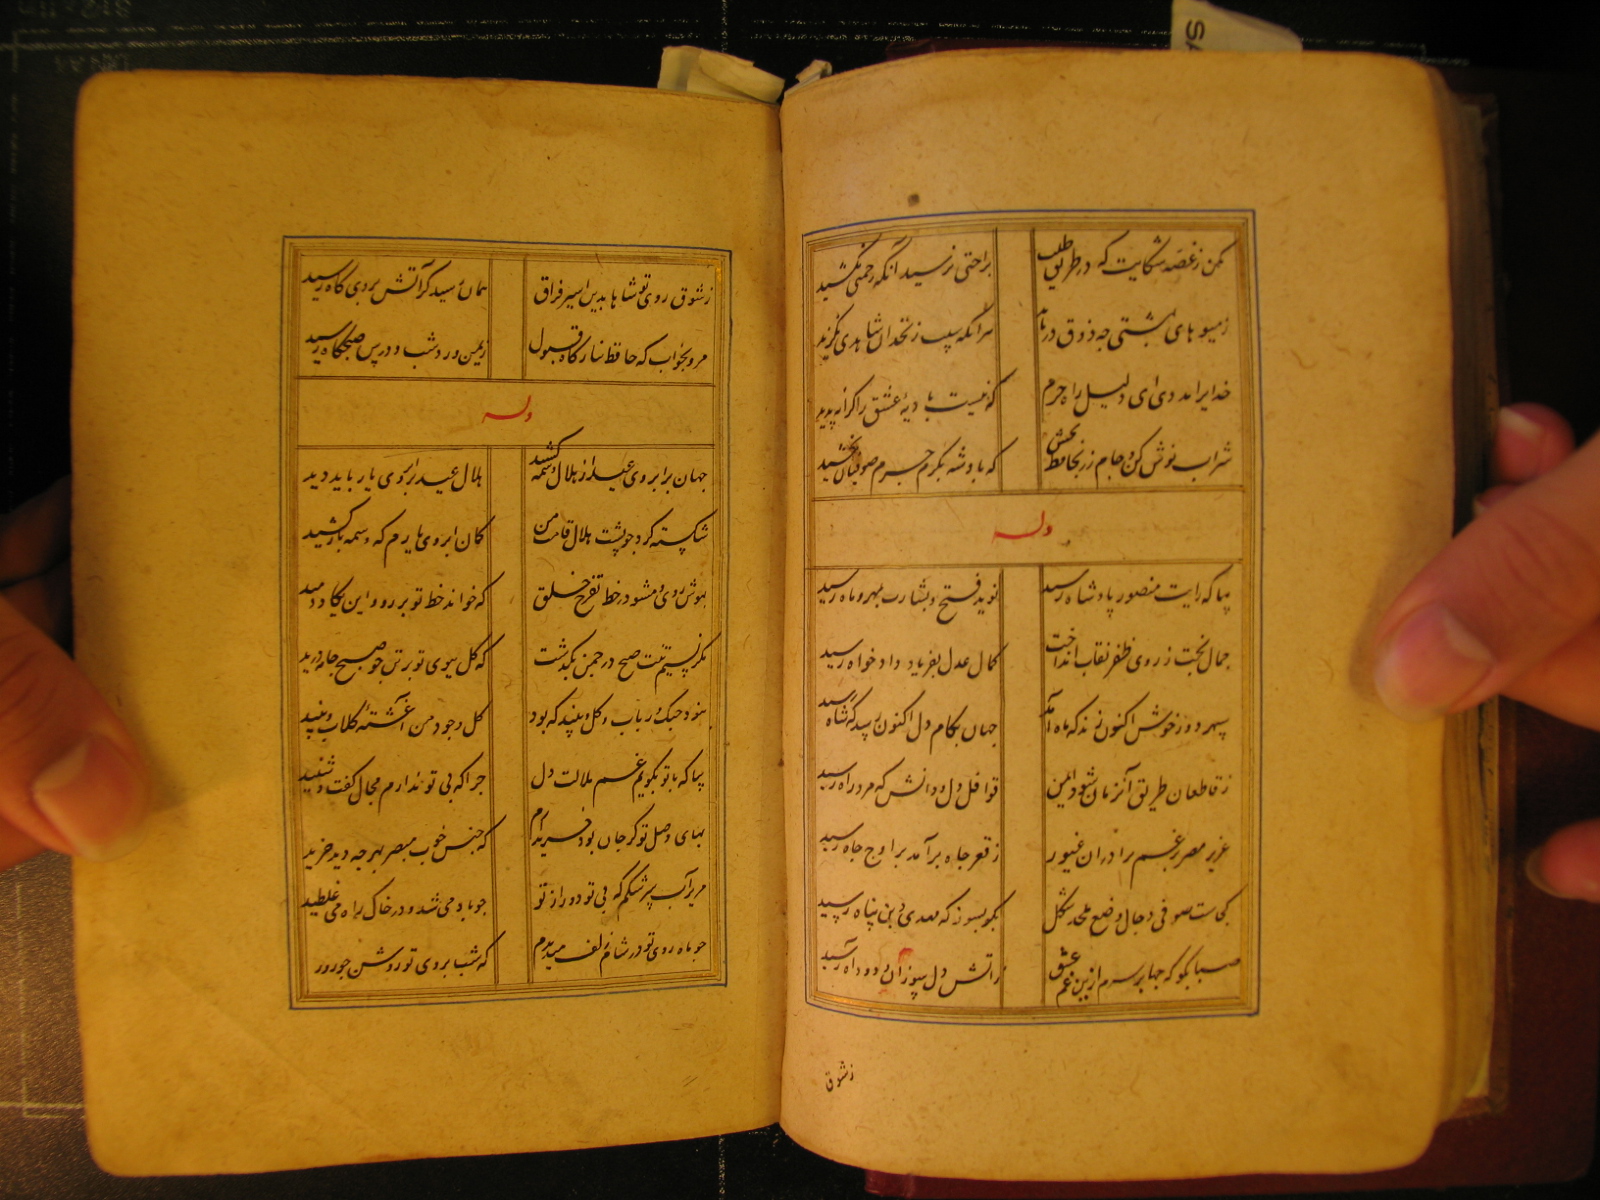 مکن ز غصه شکایت که در طریق طلب
براحتی نرسید آنکه زحمتی نکشید
ز میوهای بهشتی چه ذوق دریابد
هر آنکه سیب زنخدان شاهدی نگزید
خدایرا مددی ای دلیل راه حرم
که نیست بادیهٔ عشق را کرانه پدید
شراب نوش کن و جام زر بحافظ بخش
که پادشه بکرم جرم صوفیان بخشید
وله
بیا که رایت منصور پادشاه رسید
نوید فتح و بشارت بمهر و ماه رسید
جمال بخت ز روی ظفر نقاب انداخت
کمال عدل بفریاد دادخواه رسید
سپهر دور خوش اکنون زند که ماه آمد
جهان بکام دل اکنون رسد که شاه رسید
ز قاطعان طریق آن زمان شود ایمن
قوافل دل و دانش که مرد راه رسید
عزیز مصر برغم برادران غیور
ز قعر چاه برآمد براوج جاه رسید
کجاست صوفی دجال وضع ملحد شکل
بگو بسوز که مهدی دین پناه رسید
صبا بگو که چها بر سرم ازین غم عشق
ز آتش دل سوزان و دود آه رسید
ز شوق
ز شوق روی تو شاها بدین اسیر فراق
همان رسید کز آتش بروی کاه رسید
مرو بخواب که حافظ ببارگاه قبول
ز یمن ورد شب و درس صبحگاه رسید
وله
جهان بر ابروی عید از هلال وسمه کشید
هلال عید در ابروی یار باید دید
شکسته کرد چو پشت هلال قامت من
کمان ابروی یارم که وسمه باز کشید
بپوش روی و مشو در خط تفرج خلق
که خواند خط تو بر رو و ان یکاد دمید
مگر نسیم تنت صبح در چمن بگذشت
که گل ببوی تو بر تن چو صبح جامه درید
نبود چنگ و رباب و گل و نبید که بود
گل وجود من آغشته گلاب و نبید
بیا که با تو بگویم غم ملالت دل
چرا که بی تو ندارم مجال گفت و شنید
بهای وصل تو گر جان بود خریدارم
که جنس خوب مبصر بهر چه دید خرید
مریز آب سرشکم که بی تو دور از تو
چو باد می شد و در خاک راه می غلطید
چو ماه روی تو در شام زلف میدیدم
که شب بروی تو روشن چو روز